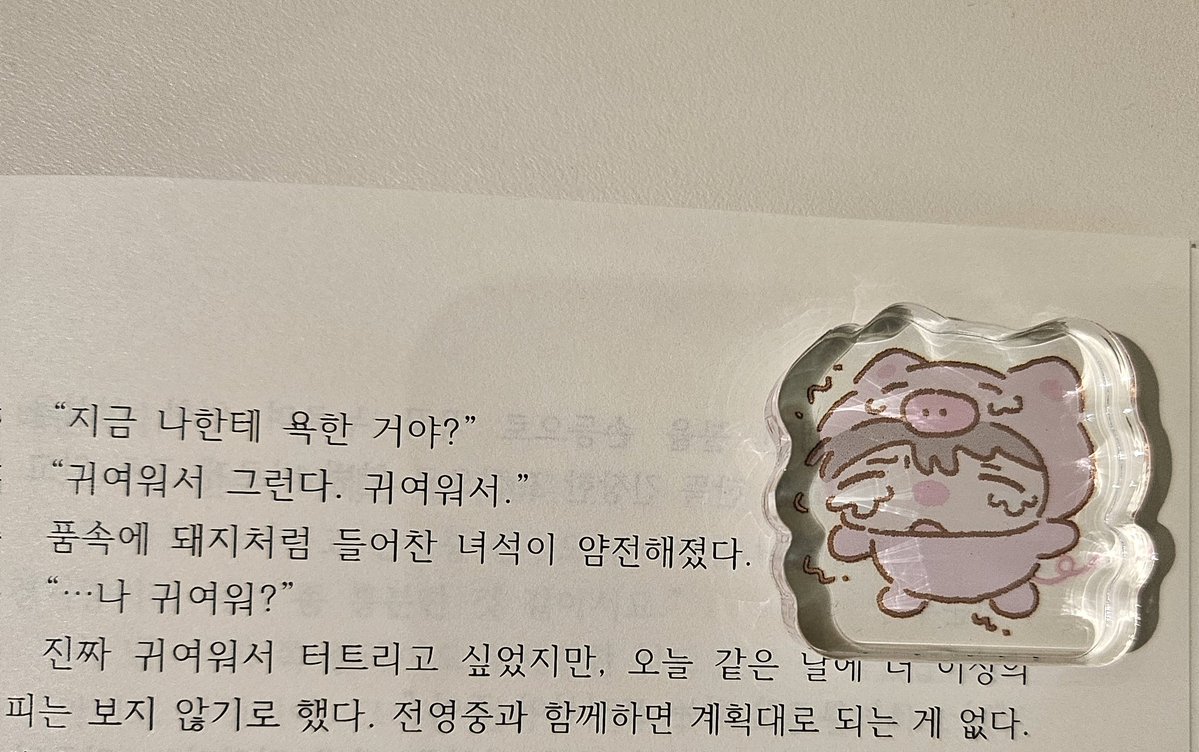 “지금 나한테 욕한 거야?”
“귀여워서 그런다. 귀여워서.”
품속에 돼지처럼 들어찬 녀석이 얌전해졌다.
“…나 귀여워?”
진짜 귀여워서 터트리고 싶었지만, 오늘 같은 날에 더 이상의
피는 보지 않기로 했다. 전영중과 함께하면 계획대로 되는 게 없다.